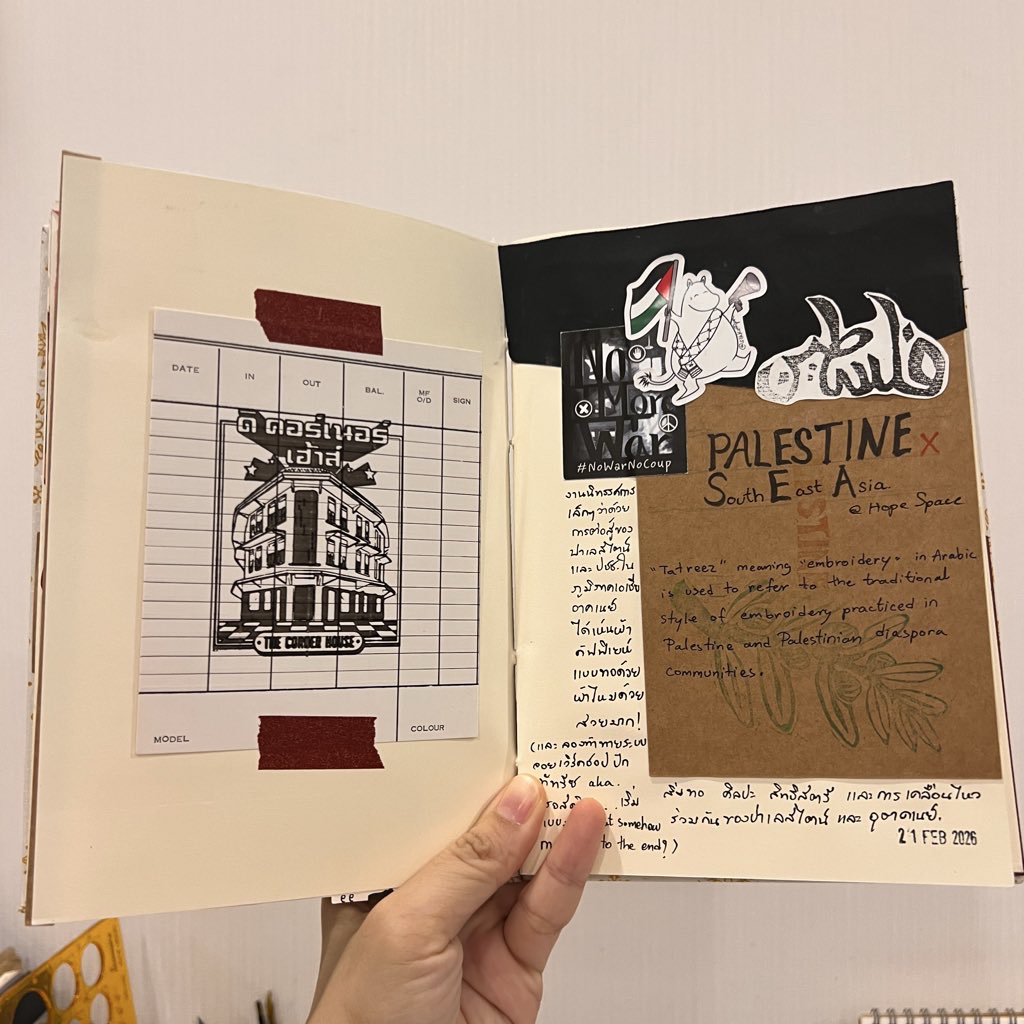 DATE IN OUT BAL. MF O/D SIGN
ดิ คอร์เนอร์
เฮ้าส์
THE CORNER HOUSE
MODEL
COLOUR
No
More
War
#NoWarNoCoup
PALESTINE X
South East Asia.
@ Hope Space
"Tatreez" meaning "embroidery" in Arabic
is used to refer to the traditional
style of embroidery practiced in
Palestine and Palestinian diaspora
communities.
งานนิทรรศการ
เล็กๆ ว่าด้วย
การต่อสู้ของ
ปาเลสไตน์
และ ปชช. ใน
ภูมิภาคเอเชีย
อาคเนย์
ได้เห็นผ้า
คัฟฟีเยห์
แบบทอด้วย
ผ้าไหมด้วย
สวยมาก!
(และ
ลองเวิร์คชอปปัก
ทัทรีซ aka.
เริ่ม
somehow
to the end?)
สิ่งทอ ศิลปะ สิทธิสตรี และการเคลื่อนไหว
ร่วมกันของปาเลสไตน์ และ อุษาคเนย์.
21 FEB 2026